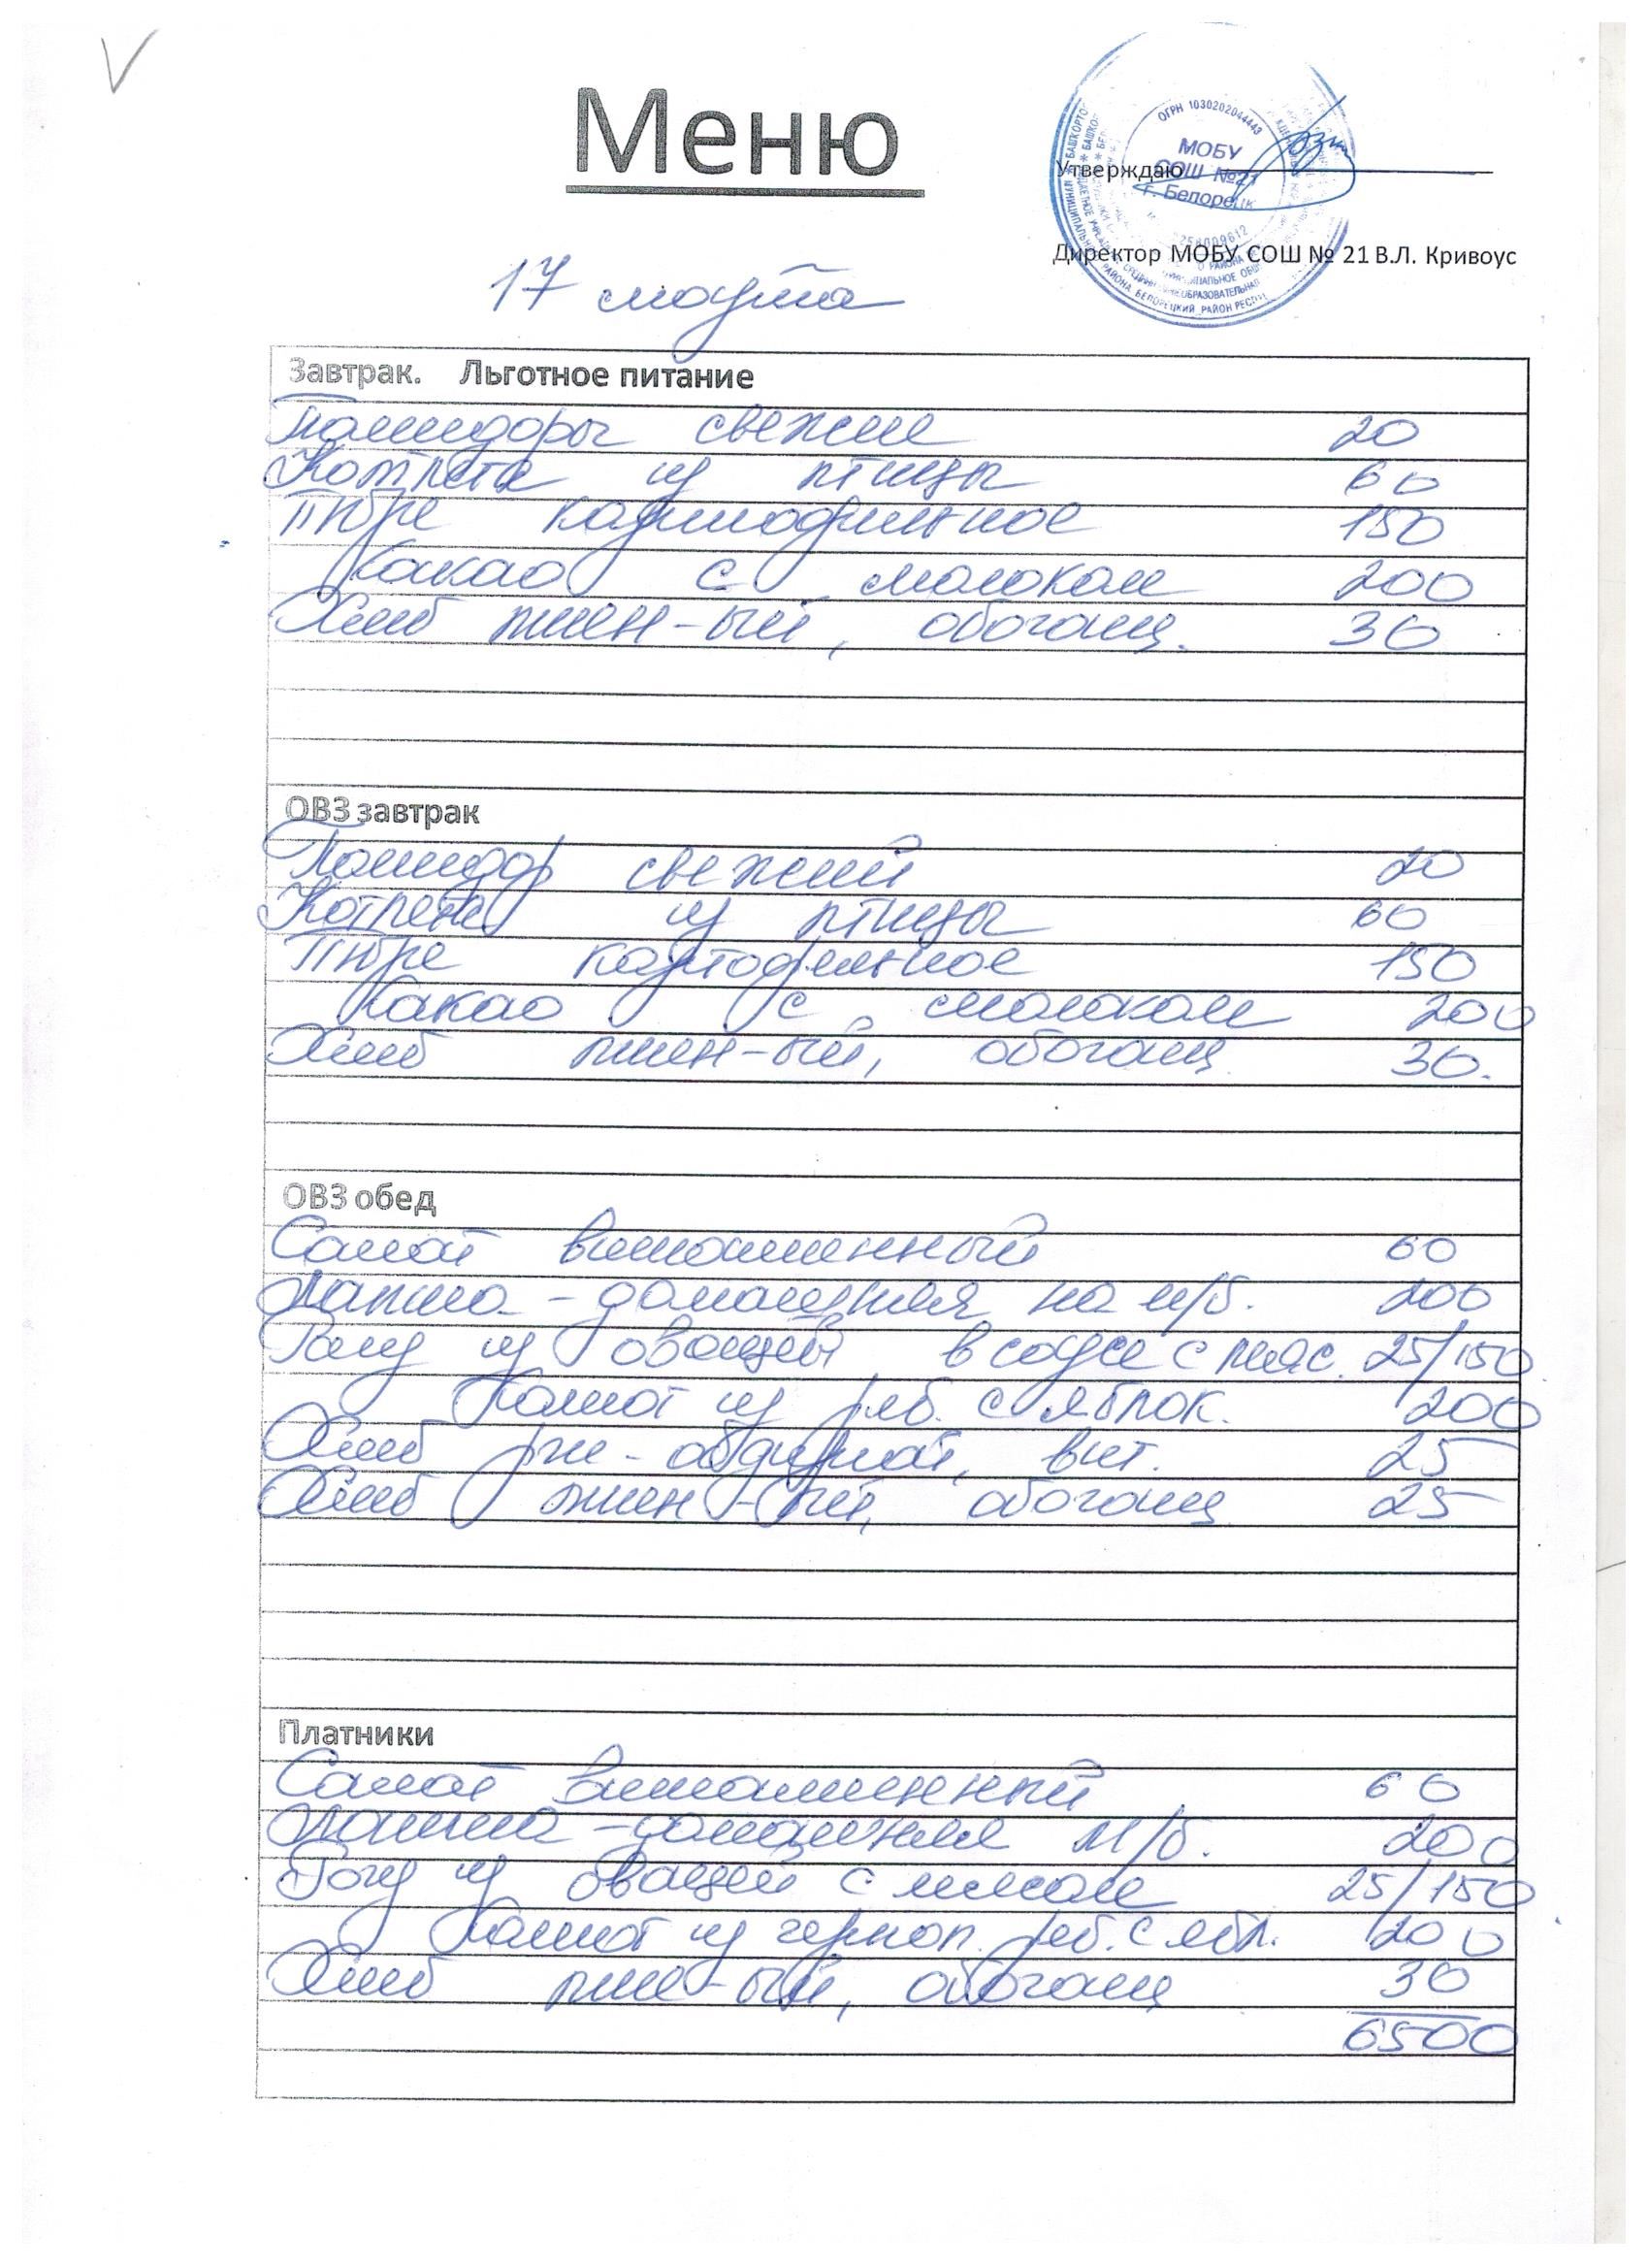 Меню
ОГРН 1030202044443
МОБУ
СОШ №21
г. Белорецк
Утверждаю
Директор МОБУ СОШ № 21 В.Л. Кривоус
17 марта
Завтрак. Льготное питание
Помидоры свежие 20
Котлета из птицы 60
Пюре картофельное 150
Какао с молоком 200
Хлеб пшен-ый, обогащ. 30
ОВЗ завтрак
Помидор свежий 20
Котлета из птицы 60
Пюре картофельное 150
Какао с молоком 200
Хлеб пшен-ый, обогащ 30.
ОВЗ обед
Салат витаминный 60
Лапша - домашняя на м/б. 200
Рагу из овощей в соусе с мяс. 25/150
Компот из ряб. с яблок. 200
Хлеб рж - обдирной, вит. 25
Хлеб пшен-ый, обогащ 25
Платники
Салат витаминный 60
Лапша - домашняя м/б. 200
Рагу из овощей с мясом 25/150
Компот из черноп. ряб. с ябл. 200
Хлеб пше-ый, обогащ 30
6500